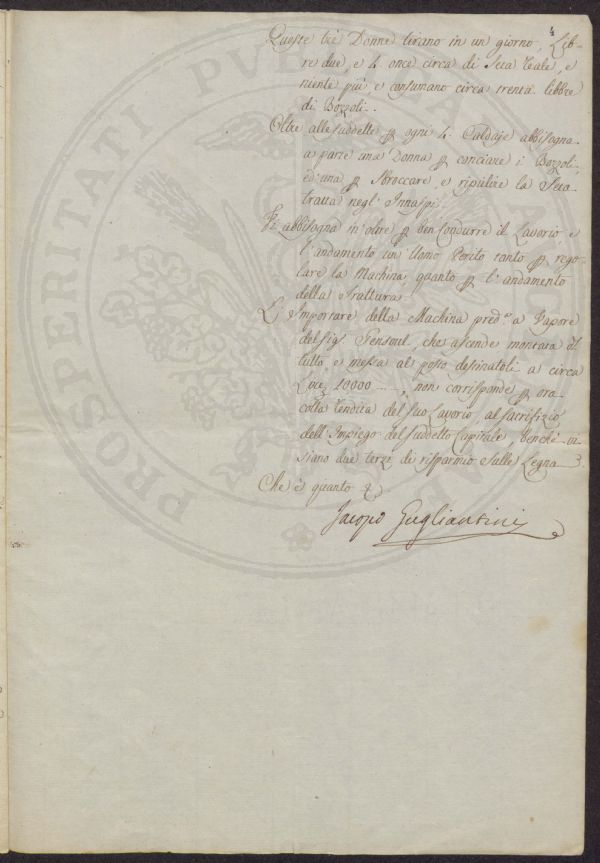 4
Queste trè Donne tirano in un giorno, Lib-
re due, e 4. once circa di Seta reale, e
niente più, e consumano circa trenta libbre
di Bozzoli.
Oltre alle suddette ꝑ ogni 4. Caldaje abbisogna
a parte una Donna ꝑ conciare i Bozzoli,
ed una ꝑ sbroccare, e ripulire la Seta
tratta negl' Innaspi.
Vi abbisogna in oltre ꝑ ben condurre il Lavorio e
l' andamento un Uomo Perito tanto ꝑ rego-
lare la Machina, quanto ꝑ l' andamento
della Trattura.
L' Importare della Machina pred.ª a Vapore
del Sig.ʳ Gensoul, che ascende montata il
tutto e messa al posto destinatoli a circa
Lire 10000 ...., non corrisponde ꝑ ora
colla rendita del suo Lavorio, al sacrifizio
dell' Impiego del suddetto Capitale, benchè vi
siano due terze di risparmio sulle Legna.
Che è quanto
Jacopo Gugliantini
PROSPERITATI PVBLICAE AVGENDAE